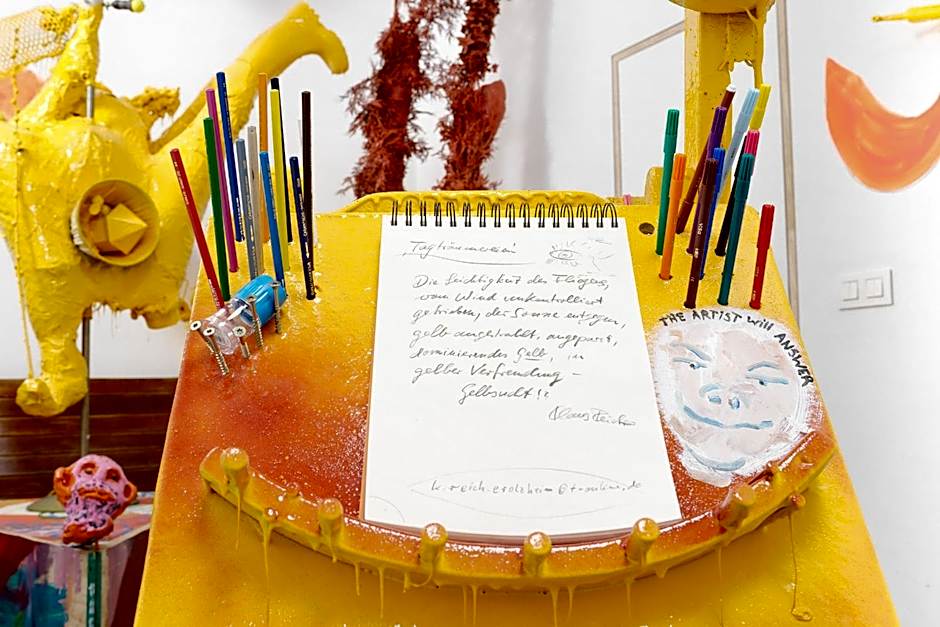 Tagträumerei
Die Leichtigkeit des Fliegens,
vom Wind unkontrolliert
getrieben, der Sonne entgegen,
gelb angestrahlt, angepasst,
dominierendes Gelb, in
gelber Verfremdung -
Gelbsucht!?
Klaus Reich
k.reich.erolzheim@t-online.de
THE ARTIST WILL ANSWER